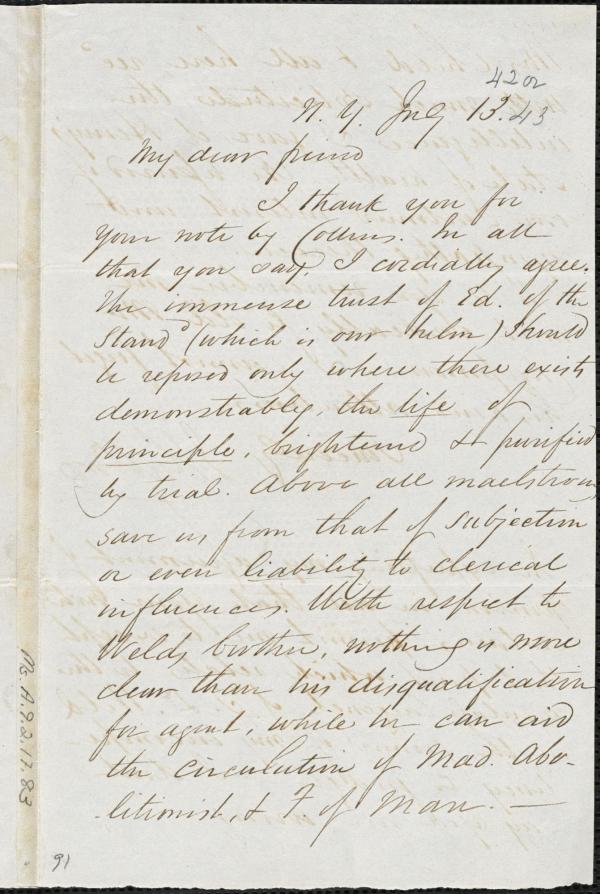 42 or
43
N. Y. July 13.
My dear friend
I thank you for
your note by Collins. In all
that you say, I cordially agree.
The immense trust of Ed. of the
Stand^d (which is our helm) should
be reposed only where there exists
demonstrably, the life of
principle, brightened & purified
by trial. Above all maelstroms
save us from that of subjection
or even liability to clerical
influences. With respect to
Welds brother, nothing is more
clear than his disqualification
for agent, while he can aid
the circulation of Mad. Abo-
litionist, & F of Man. —
Ms.A.9.2.17.83
91